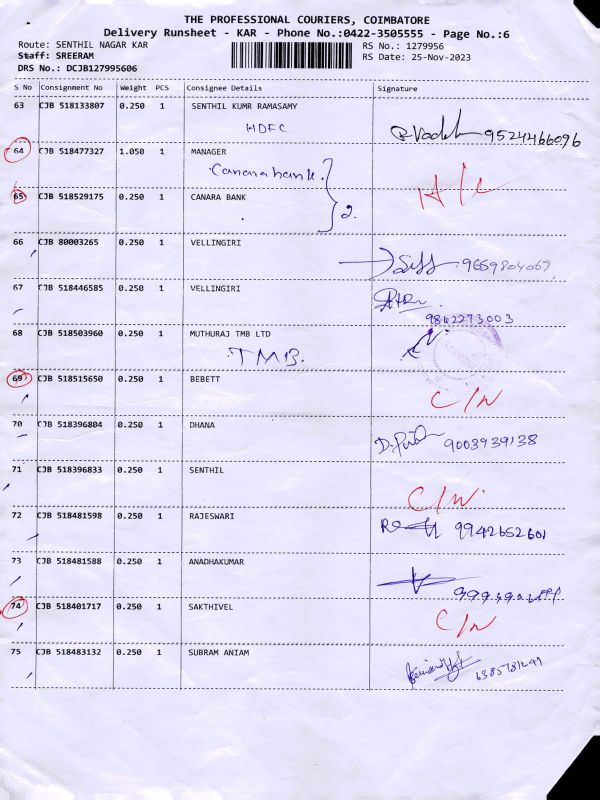 THE PROFESSIONAL COURIERS, COIMBATORE
Delivery Runsheet - KAR - Phone No.:0422-3505555 - Page No.:6
Route: SENTHIL NAGAR KAR
RS No.: 1279956
Staff: SREERAM
RS Date: 25-Nov-2023
DRS No.: DCJB127995606
S No Consignment No Weight PCS Consignee Details Signature
63 CJB 518133807 0.250 1 SENTHIL KUMR RAMASAMY
HDFC
9524466096
64 CJB 518477327 1.050 1 MANAGER
Canara bank.
65 CJB 518529175 0.250 1 CANARA BANK
2.
66 CJB 80003265 0.250 1 VELLINGIRI
9659804069
67 CJB 518446585 0.250 1 VELLINGIRI
9842273003
68 CJB 518503960 0.250 1 MUTHURAJ TMB LTD
TMB.
69 CJB 518515650 0.250 1 BEBETT
C/N
70 CJB 518396804 0.250 1 DHANA
9003939138
71 CJB 518396833 0.250 1 SENTHIL
C/N.
72 CJB 518481598 0.250 1 RAJESWARI
9942652601
73 CJB 518481588 0.250 1 ANADHAKUMAR
74 CJB 518401717 0.250 1 SAKTHIVEL
C/N
75 CJB 518483132 0.250 1 SUBRAM ANIAM